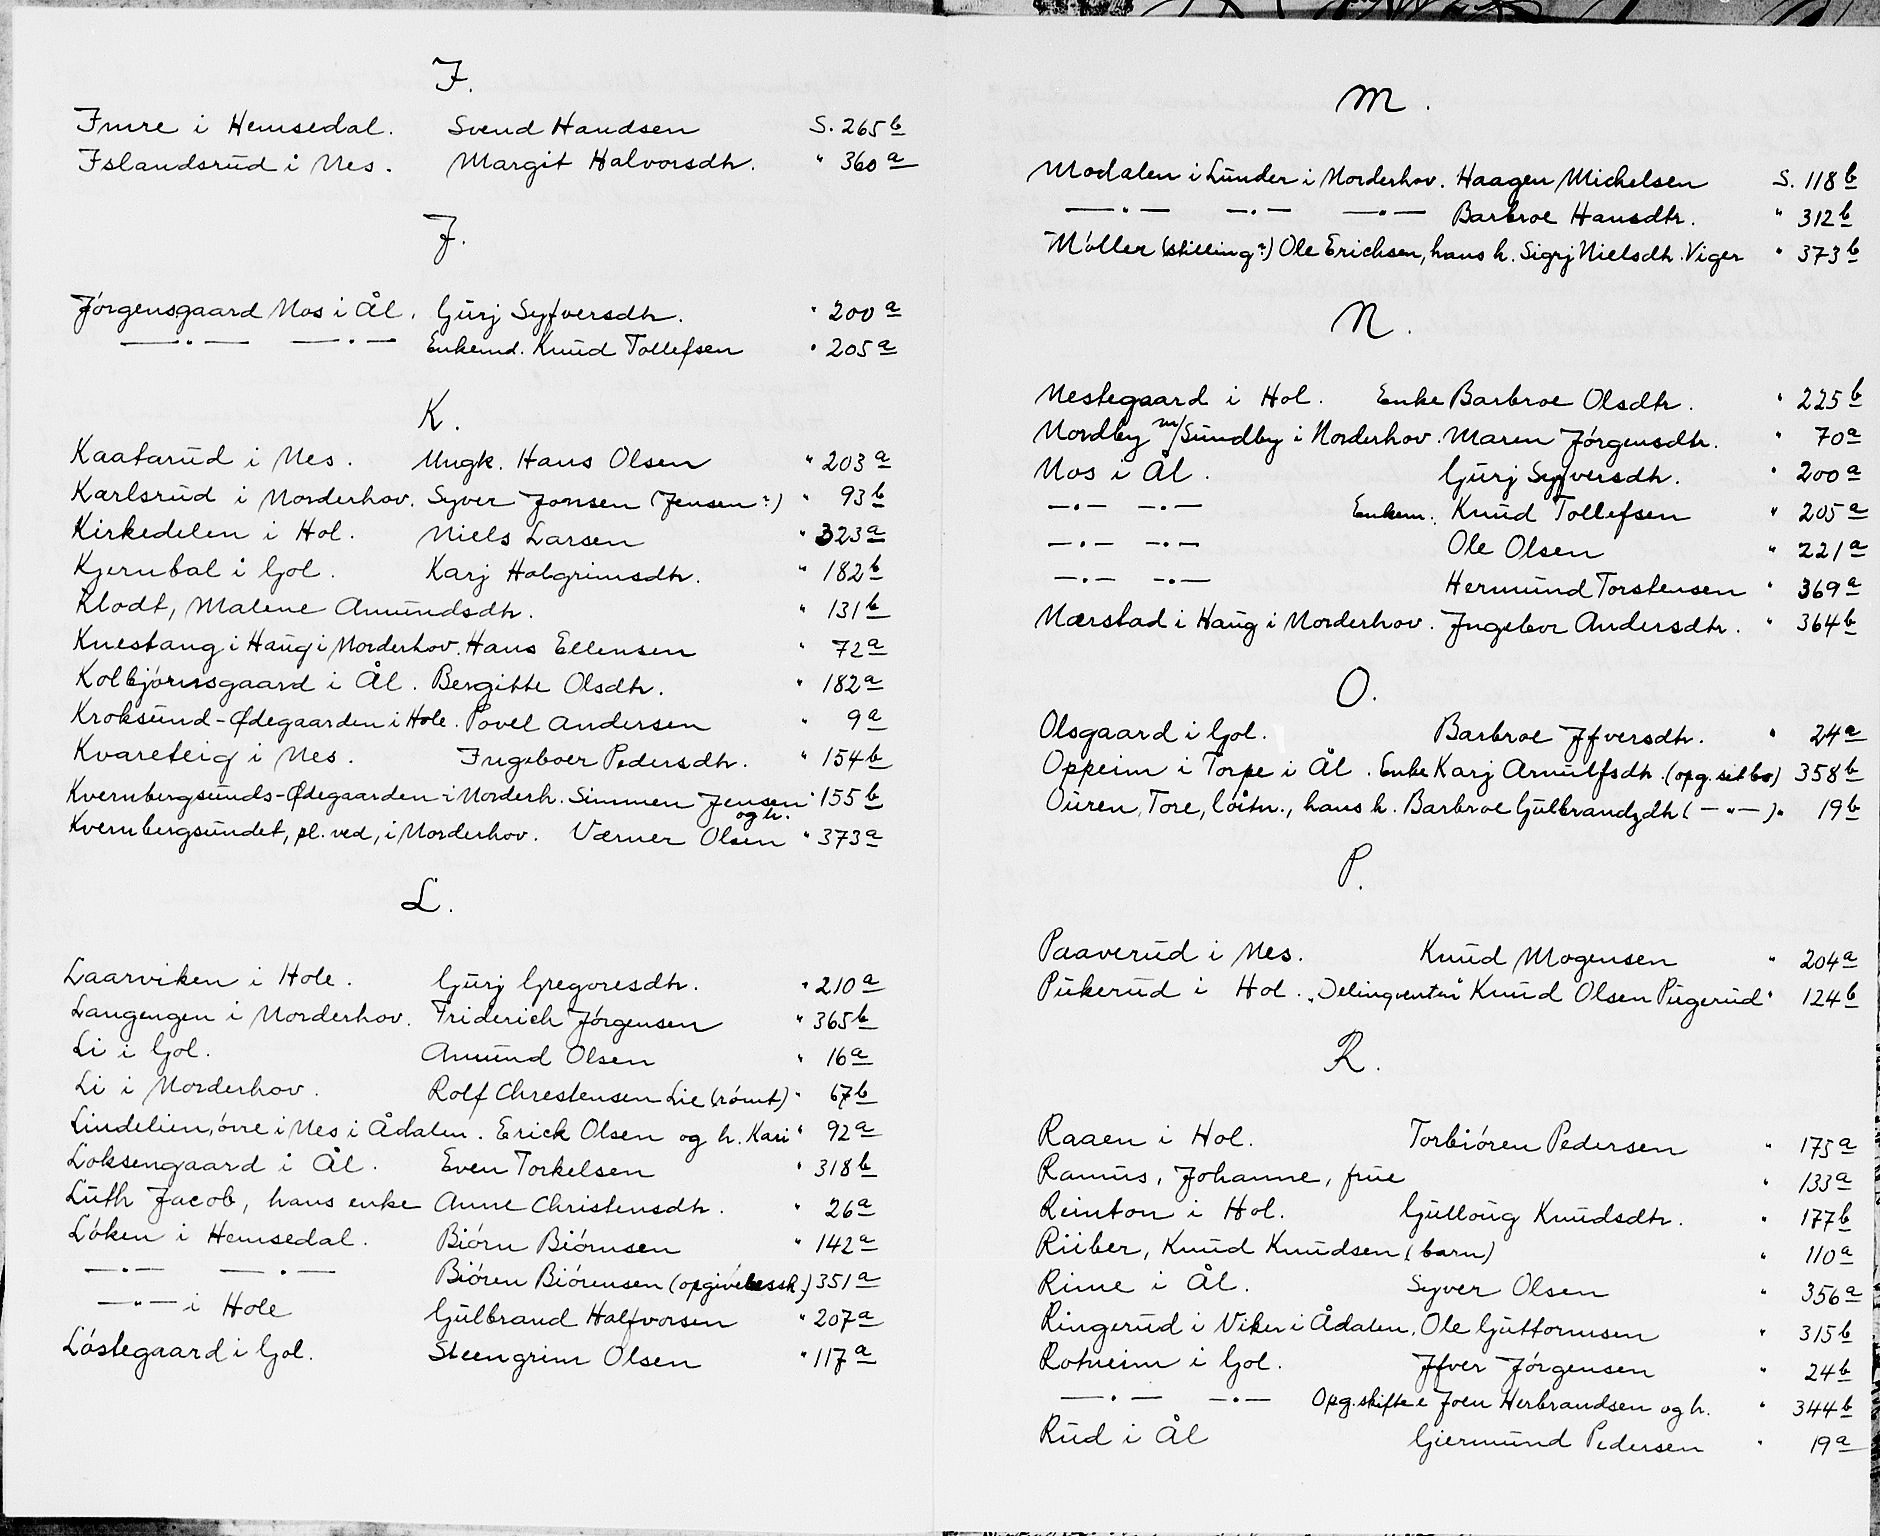 I.
Imre i Hemsedal. Svend Handsen S. 265 b
Islandsrud i Nes. Margit Halvorsdtr. " 360 a
J.
Jørgensgaard Nos i Ål. Gurj Syfversdtr. " 200 a
—"— —"— Enkemd. Knud Tollefsen " 205 a
K.
Kaatarud i Nes. Ungk. Hans Olsen " 203 a
Karlsrud i Norderhov. Syver Jonsen (Jensen?) " 93 b
Kirkedelen i Hol. Niels Larsen " 323 a
Kjernbal i Gol. Karj Halgrimsdtr. " 182 b
Klodt, Malene Amundsdtr. " 131 b
Knestang i Haug i Norderhov. Hans Ellensen " 72 a
Kolbjørnsgaard i Ål. Bergitte Olsdtr. " 182 a
Kroksund-Ødegaarden i Hole. Povel Andersen " 9 a
Kvareteig i Nes. Ingeboer Pedersdtr. " 154 b
Kvernbergsunds-Ødegaarden i Norderh. Simmen Jensen " 155 b
og h.
Kvernbergsundet, pl. ved, i Norderhov. Værner Olsen " 373 a
L.
Laarviken i Hole. Gurj Gregoresdtr. " 210 a
Langengen i Norderhov. Friderich Jørgensen " 365 b
Li i Gol. Amund Olsen " 16 a
Li i Norderhov. Rolf Chrestensen Lie (rømt) " 67 b
Lindelien, øvre i Nes i Ådalen. Erick Olsen og h. Kari " 92 a
Loksengaard i Ål. Even Torkelsen " 318 b
Luth Jacob, hans enke Anne Christensdtr. " 26 a
Løken i Hemsedal. Biørn Biørnsen " 142 a
—"— —"— Biøren Biørensen (opgivelsessk.) 351 a
—"— i Hole Gulbrand Halfvorsen " 207 a
Løstegaard i Gol. Steengrim Olsen " 117 a
M.
Modalen i Lunder i Norderhov. Haagen Michelsen S. 118 b
—"— —"— —"— Barbroe Hansdtr. " 312 b
Møller (stilling?) Ole Erichsen, hans h. Sigrj Nielsdtr. Viger " 373 b
N.
Nestegaard i Hol. Enke Barbroe Olsdtr. " 225 b
Nordby m/Sundby i Norderhov. Maren Jørgensdtr. " 70 a
Nos i Ål. Gurj Syfversdtr. " 200 a
—"— —"— Enkem. Knud Tollefsen " 205 a
—"— —"— Ole Olsen " 221 a
—"— —"— Hermund Torstensen " 369 a
Nærstad i Haug i Norderhov. Ingebor Andersdtr. " 364 b
O.
Olsgaard i Gol. Barbroe Ifversdtr. " 24 a
Oppeim i Torpe i Ål. Enke Karj Arnulfsdtr. (opg. sit bo) 358 b
Ouren, Tore, løitn., hans h. Barbroe Gulbrandzdtr. (—"—)" 19 b
P.
Paaverud i Nes. Knud Mogensen " 204 a
Pukerud i Hol. „Delinqventen" Knud Olsen Pugerud " 124 b
R.
Raaen i Hol. Torbiøren Pedersen " 175 a
Ramus, Johanne, frue " 133 a
Reinton i Hol. Gulloug Knudsdtr. " 177 b
Riiber, Knud Knudsen (barn) " 110 a
Rime i Ål. Syver Olsen " 356 a
Ringerud i Viker i Ådalen. Ole Guttormsen " 315 b
Rotneim i Gol. Ifver Jørgensen " 24 b
—"— —"— Opg. skifte e Joen Herbrandsen og h. " 344 b
Rud i Ål Giermund Pedersen " 19 a